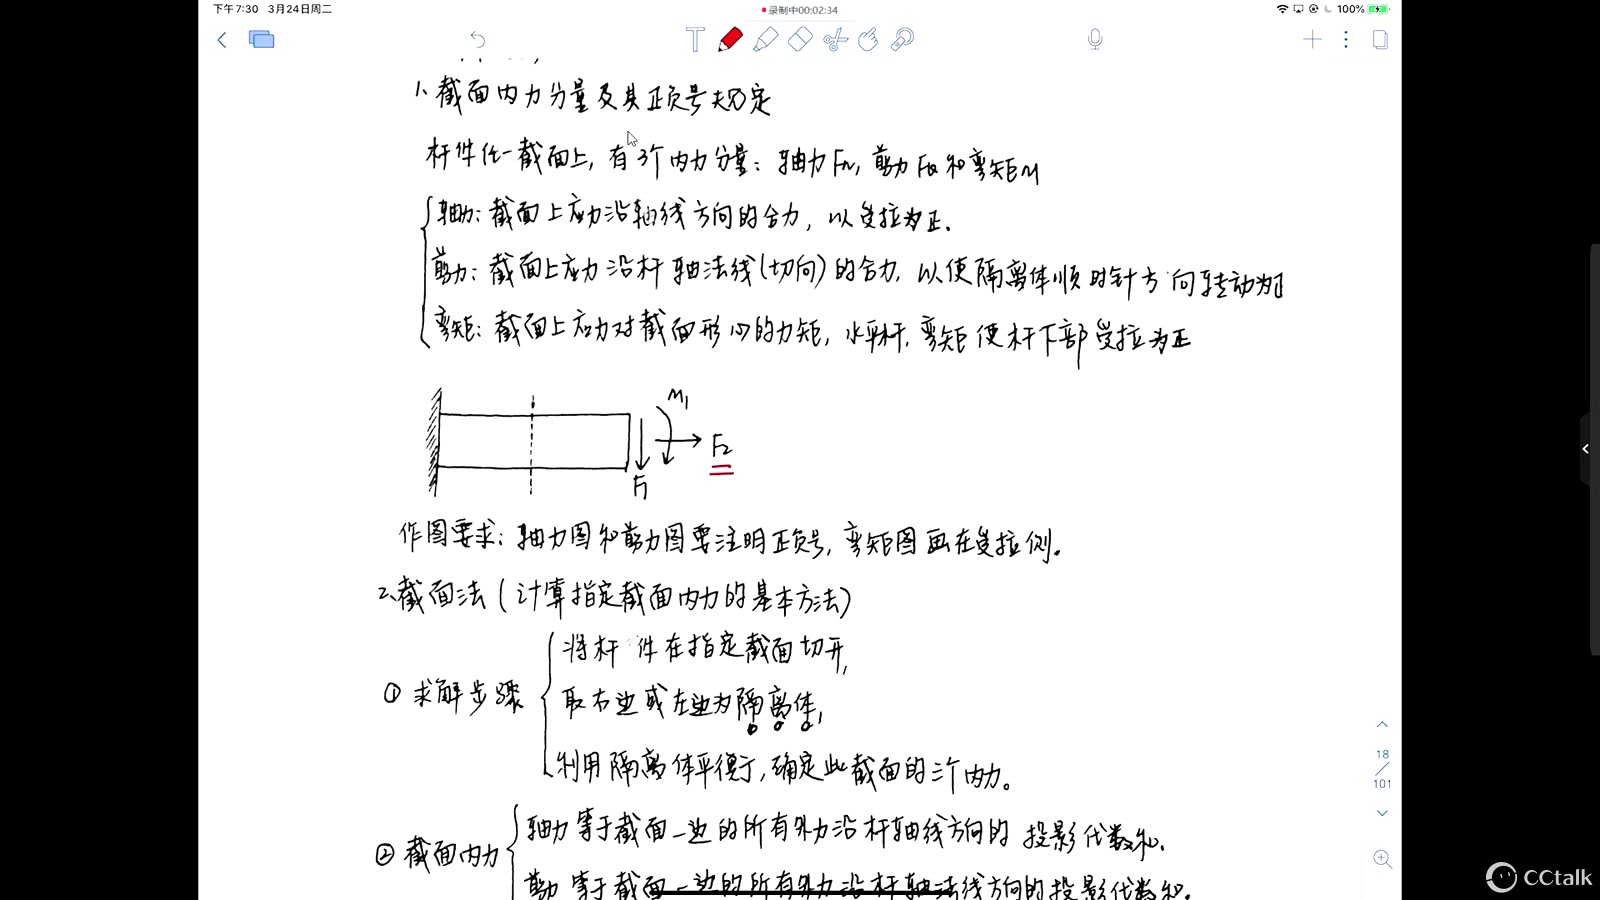 下午7:30 3月24日周二
录制中00:02:34
100%
1、截面内力分量及其正负号规定
杆件任一截面上,有3个内力分量:轴力FN,剪力FQ和弯矩M
轴力:截面上应力沿轴线方向的合力,以受拉为正.
剪力:截面上应力沿杆轴法线(切向)的合力,以使隔离体顺时针方向转动为正
弯矩:截面上应力对截面形心的力矩,水平杆,弯矩使杆下部受拉为正
M1
F2
F1
作图要求:轴力图和剪力图要注明正负号,弯矩图画在受拉侧。
2、截面法(计算指定截面内力的基本方法)
① 求解步骤
将杆件在指定截面切开,
取右边或左边为隔离体,
利用隔离体平衡,确定此截面的三个内力。
② 截面内力
轴力等于截面一边的所有外力沿杆轴线方向的投影代数和.
剪力等于截面一边的所有外力沿杆轴法线方向的投影代数和.
18
101
CCtalk